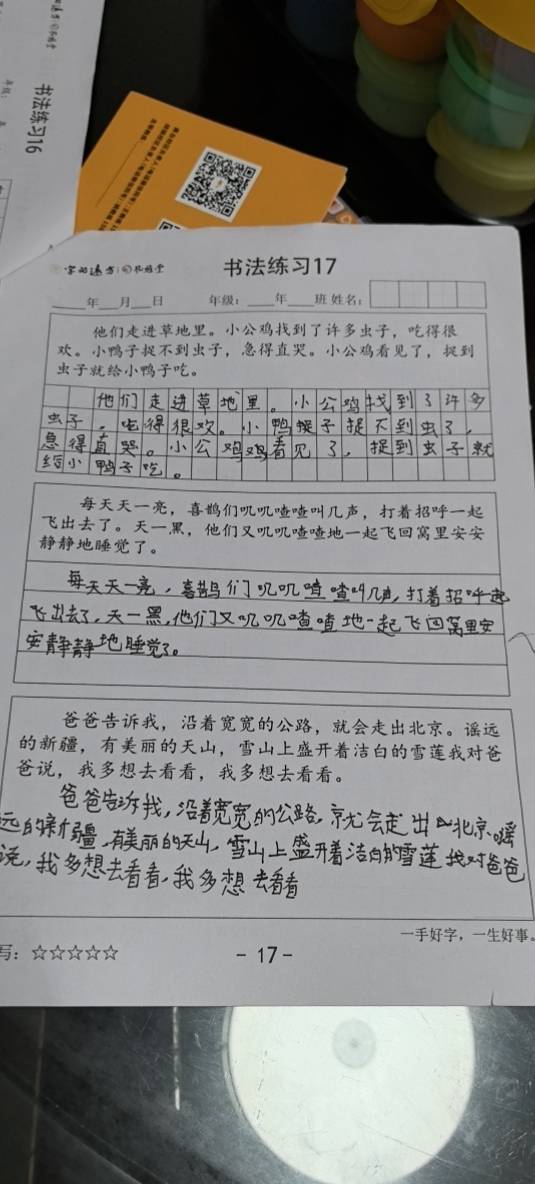 书法练习16
书法练习17
年 月 日 年级: 年 班 姓名:
他们走进草地里。小公鸡找到了许多虫子，吃得很
欢。小鸭子捉不到虫子，急得直哭。小公鸡看见了，捉到
虫子就给小鸭子吃。
他们走进草地里。小公鸡找到了许多
虫子，吃得很欢。小鸭子捉不到虫了，
急得直哭。小公鸡鸡看见了，捉到虫子就
给小鸭子吃。
每天天一亮，喜鹊们叽叽喳喳叫几声，打着招呼一起
飞出去了。天一黑，他们又叽叽喳喳地一起飞回窝里安安
静静地睡觉了。
每天天一亮，喜鹊们叽叽喳喳叫几声，打着招呼一起
飞出去了，天一黑，他们又叽叽喳喳地一起飞回窝里安
安静静地睡觉了。
爸爸告诉我，沿着宽宽的公路，就会走出北京。谣远
的新疆，有美丽的天山，雪山上盛开着洁白的雪莲我对爸
爸说，我多想去看看，我多想去看看。
爸爸告诉我，沿着宽宽的公路，就会走出北京。谣
远的新疆，有美丽的天山，雪山上盛开着洁白的雪莲我对爸爸
说，我多想去看看，我多想去看看
一手好字，一生好事。
写：☆☆☆☆☆
- 17 -